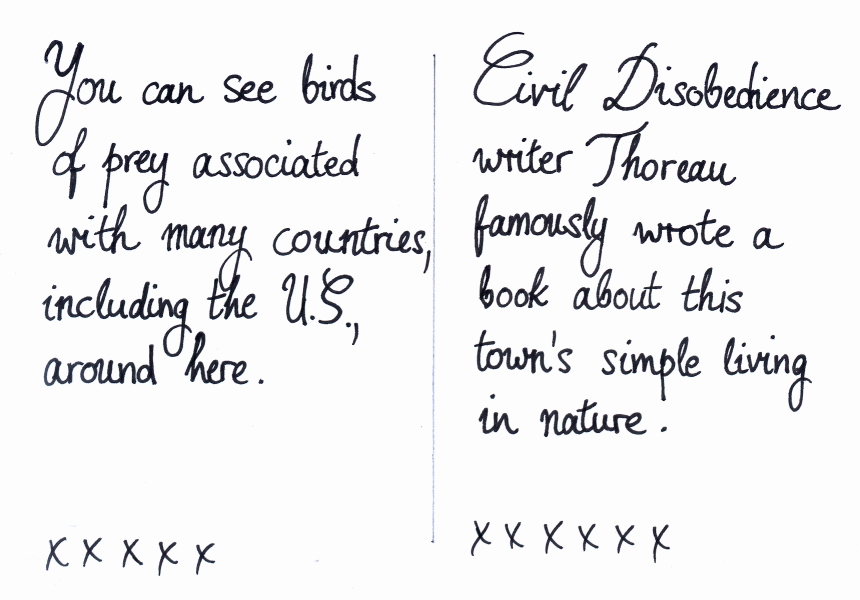 You can see birds
of prey associated
with many countries,
including the U.S.,
around here.
x x x x x
Civil Disobedience
writer Thoreau
famously wrote a
book about this
town's simple living
in nature.
x x x x x x